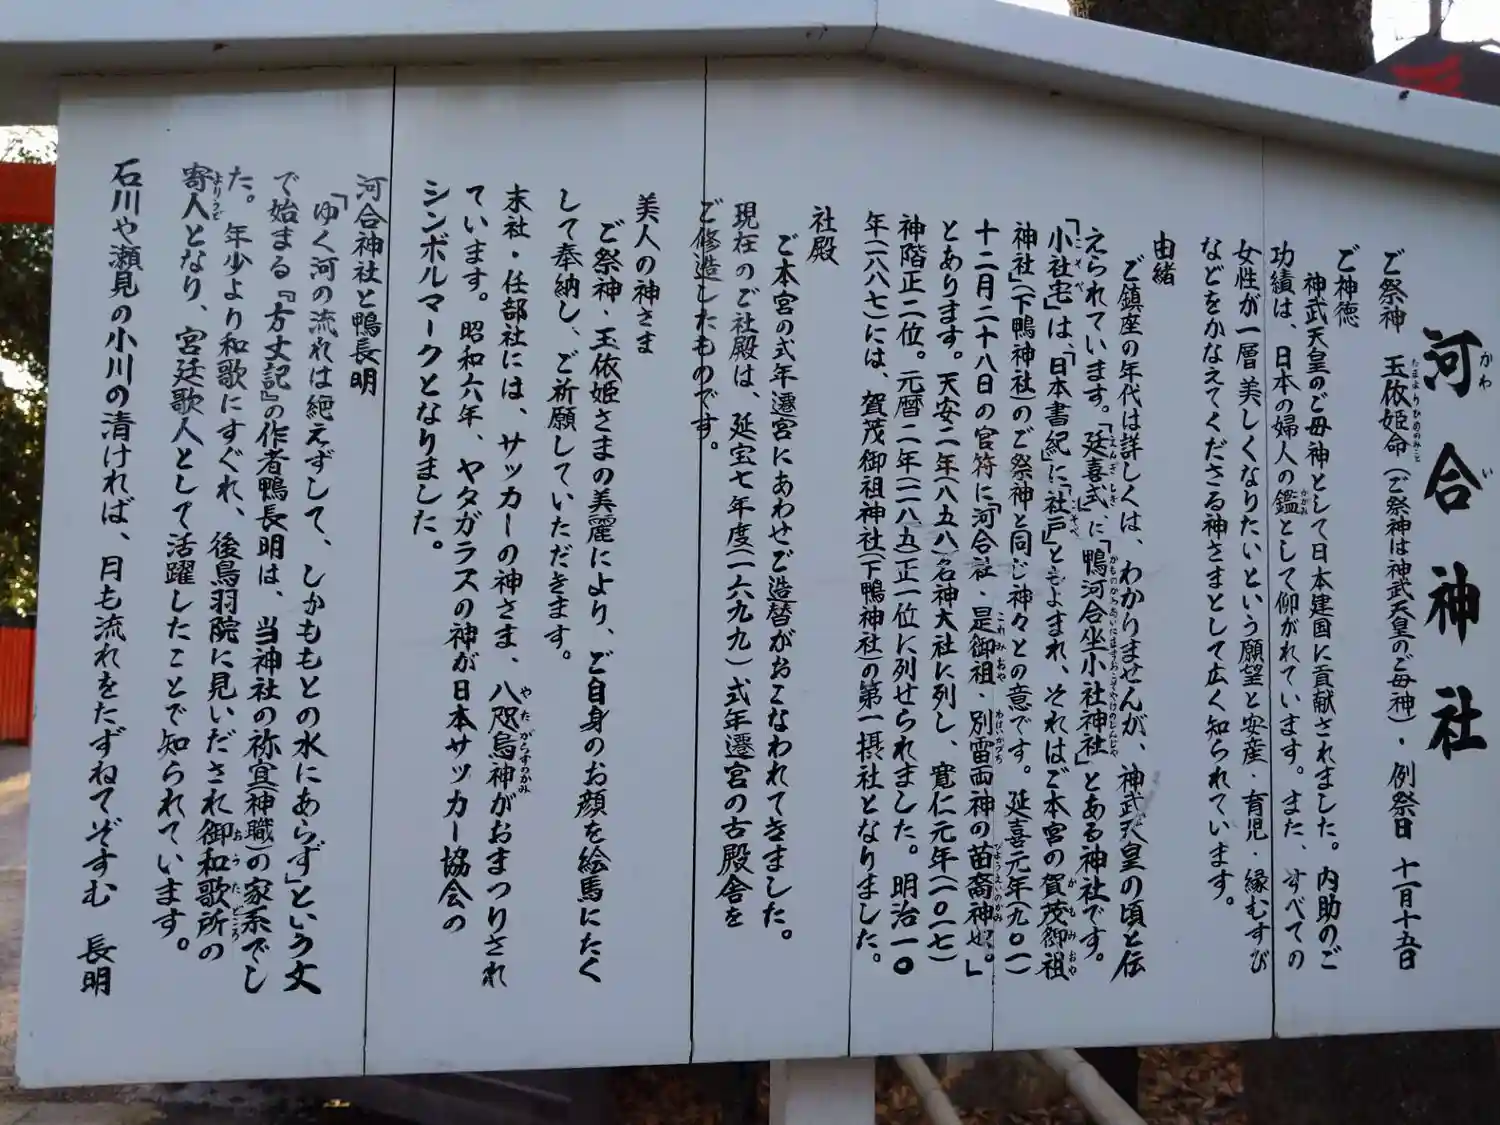 河合神社
かわ い
ご祭神 玉依姫命(ご祭神は神武天皇のご母神)・例祭日 十一月十五日
たまよりひめのみこと
ご神徳
神武天皇のご母神として日本建国に貢献されました。内助のご
功績は、日本の婦人の鑑として仰がれています。また、すべての
かがみ
女性が一層美しくなりたいという願望と安産・育児・縁むすび
などをかなえてくださる神さまとして広く知られています。
由緒
ご鎮座の年代は詳しくは、わかりませんが、神武天皇の頃と伝
えられています。「延喜式」に「鴨河合坐小社神社」とある神社です。
えんぎしき
「小社宅」は、「日本書紀」に「社戸」ともよまれ、それはご本宮の賀茂御祖
こそべ
こそべ
かもみおや
神社」(下鴨神社)のご祭神と同じ神々との意です。延喜元年(九〇一)
十二月二十八日の官符に「河合社・是御祖、別雷両神の苗裔神也。」
これみおや
わけいかづち
びょうえいのかみ
とあります。天安二年(八五八)名神大社に列し、寛仁元年(一〇一七)
神階正二位。元暦二年(一一八五)正一位に列せられました。明治一〇
年(一八七七)には、賀茂御祖神社(下鴨神社)の第一摂社となりました。
社殿
ご本宮の式年遷宮にあわせご造替がおこなわれてきました。
現在のご社殿は、延宝七年度(一六七九)式年遷宮の古殿舎を
ご修造したものです。
美人の神さま
ご祭神・玉依姫さまの美麗により、ご自身のお顔を絵馬にたく
して奉納し、ご祈願していただきます。
末社・任部社には、サッカーの神さま、八咫烏神がおまつりされ
やたがらすのかみ
ています。昭和六年、ヤタガラスの神が日本サッカー協会の
シンボルマークとなりました。
河合神社と鴨長明
「ゆく河の流れは絶えずして、しかももとの水にあらず」という文
で始まる『方丈記』の作者鴨長明は、当神社の祢宜(神職)の家系でし
た。年少より和歌にすぐれ、後鳥羽院に見いだされ御和歌所の
おうたどころ
寄人となり、宮廷歌人として活躍したことで知られています。
よりうど
石川や瀬見の小川の清ければ、月も流れをたずねてぞすむ 長明